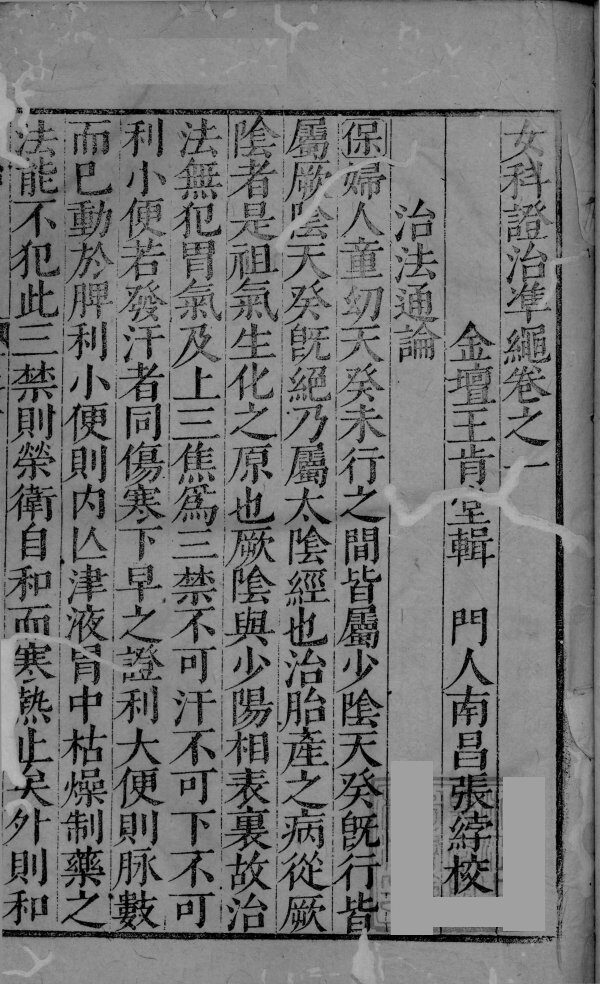 女科證治準繩卷之一
金壇王肯堂輯　門人南昌張綍校
治法通論
保婦人童幼天癸未行之間皆屬少陰天癸旣行皆
屬厥陰天癸旣絕乃屬太陰經也治胎產之病從厥
陰者是祖氣生化之原也厥陰與少陽相表裏故治
法無犯胃氣及上三焦爲三禁不可汗不可下不可
利小便若發汗者同傷寒下早之證利大便則脉數
而已動於脾利小便則内亾津液胃中枯燥制藥之
法能不犯此三禁則榮衛自和而寒熱止矣外則和